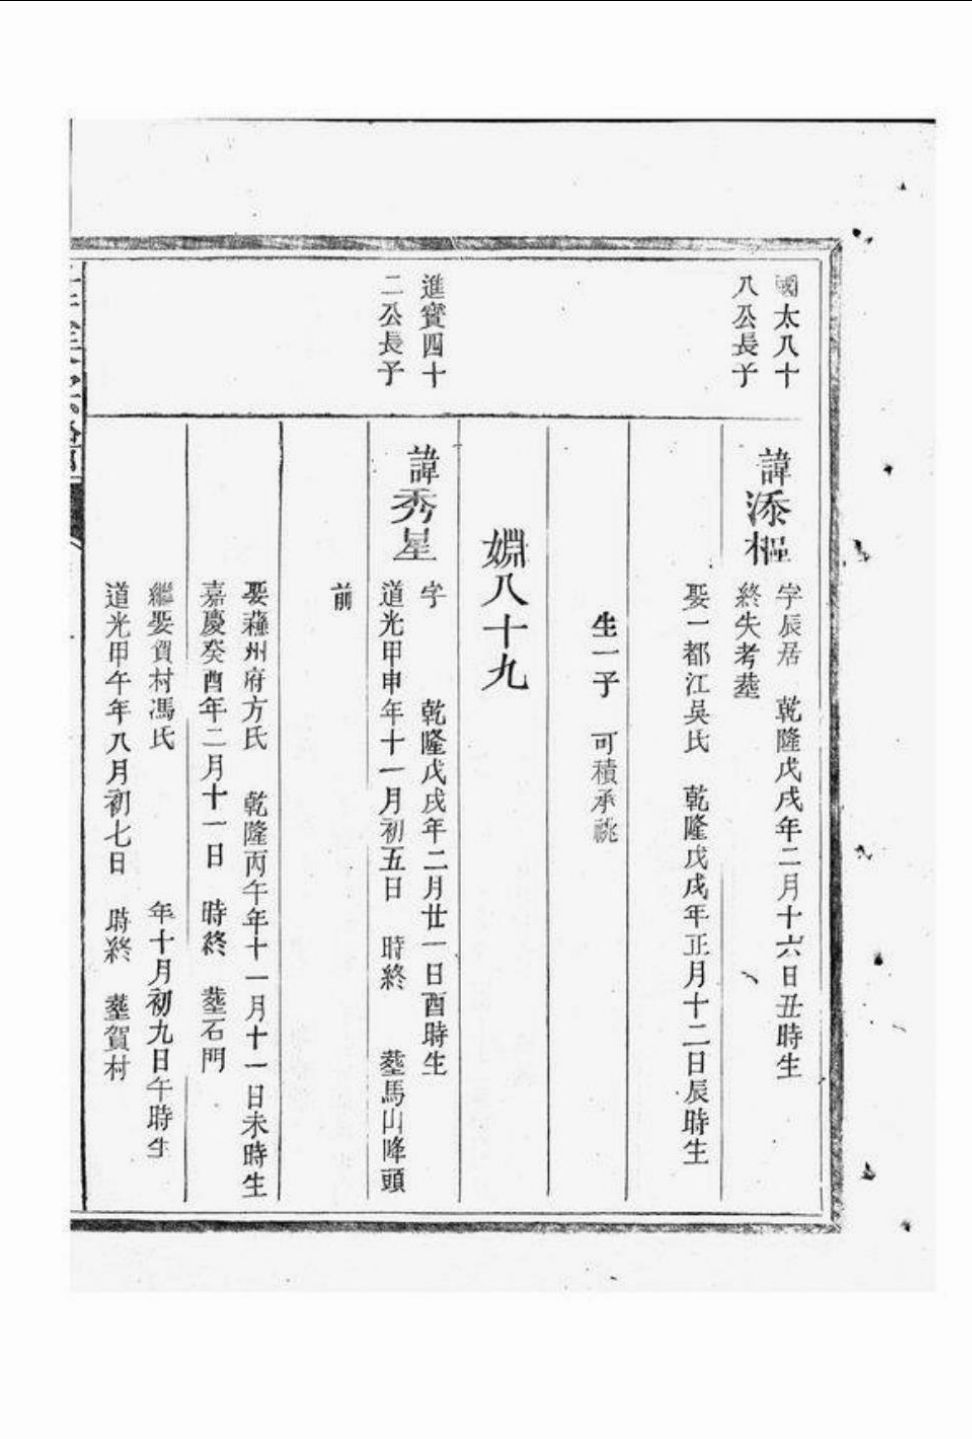 國太八十
八公長子
諱添樞
字辰居 乾隆戊戌年二月十六日丑時生
終失考塟
娶一都江吳氏 乾隆戊戌年正月十二日辰時生
生一子 可積承祧
嫺八十九
進寶四十
二公長子
諱秀星
字 乾隆戊戌年二月廿一日酉時生
道光甲申年十一月初五日 時終 塟馬山降頭
前
娶蘓州府方氏 乾隆丙午年十一月十一日未時生
嘉慶癸酉年二月十一日 時終 塟石門
繼娶賀村馮氏 年十月初九日午時生
道光甲午年八月初七日 時終 塟賀村